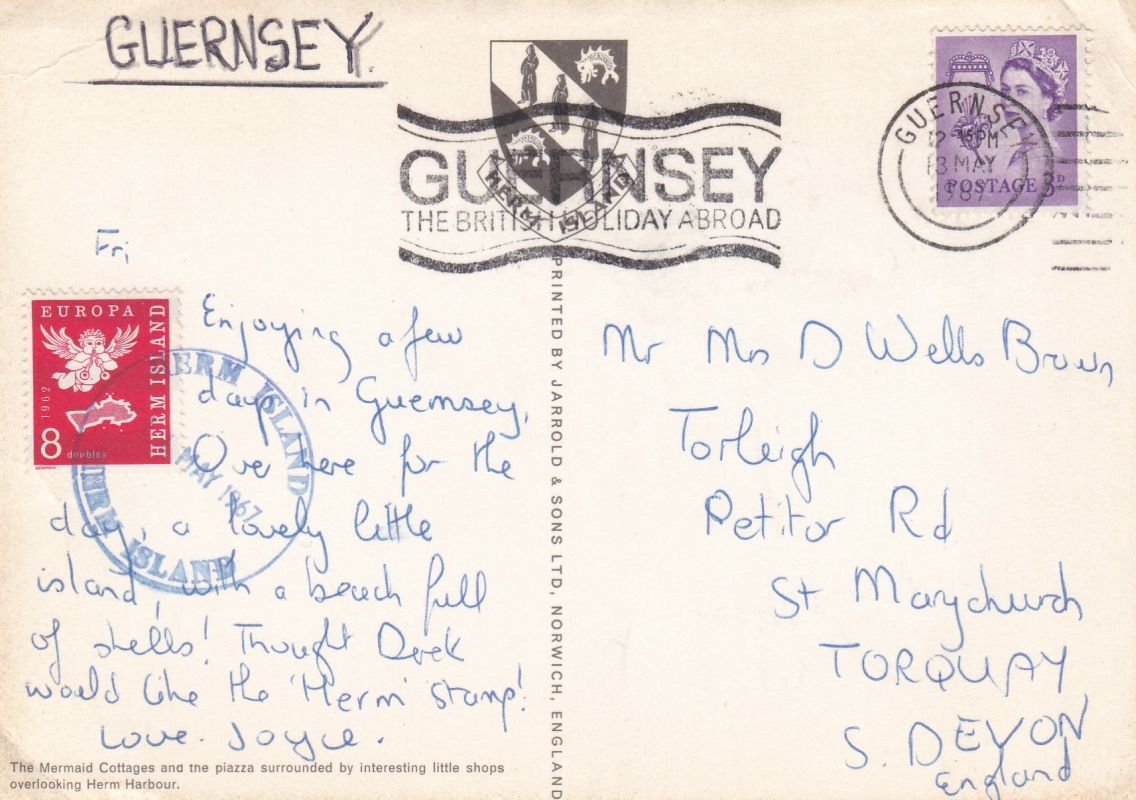 GUERNSEY.
GUERNSEY
THE BRITISH HOLIDAY ABROAD
HERM ISLAND
GUERNSEY
12 45PM
13 MAY
1967
POSTAGE 3D
Fri
EUROPA
HERM ISLAND
1962
8 doubles
HERM ISLAND
MAY 1967
HERM ISLAND
Enjoying a few
days in Guernsey.
Over here for the
day, a lovely little
island, with a beach full
of shells! Thought Derek
would like the 'Herm' stamp!
Love. Joyce.
The Mermaid Cottages and the piazza surrounded by interesting little shops
overlooking Herm Harbour.
PRINTED BY JARROLD & SONS LTD, NORWICH, ENGLAND
Mr Mrs D Wells Brown
Torleigh
Petitor Rd
St Marychurch
TORQUAY
S. DEVON
England